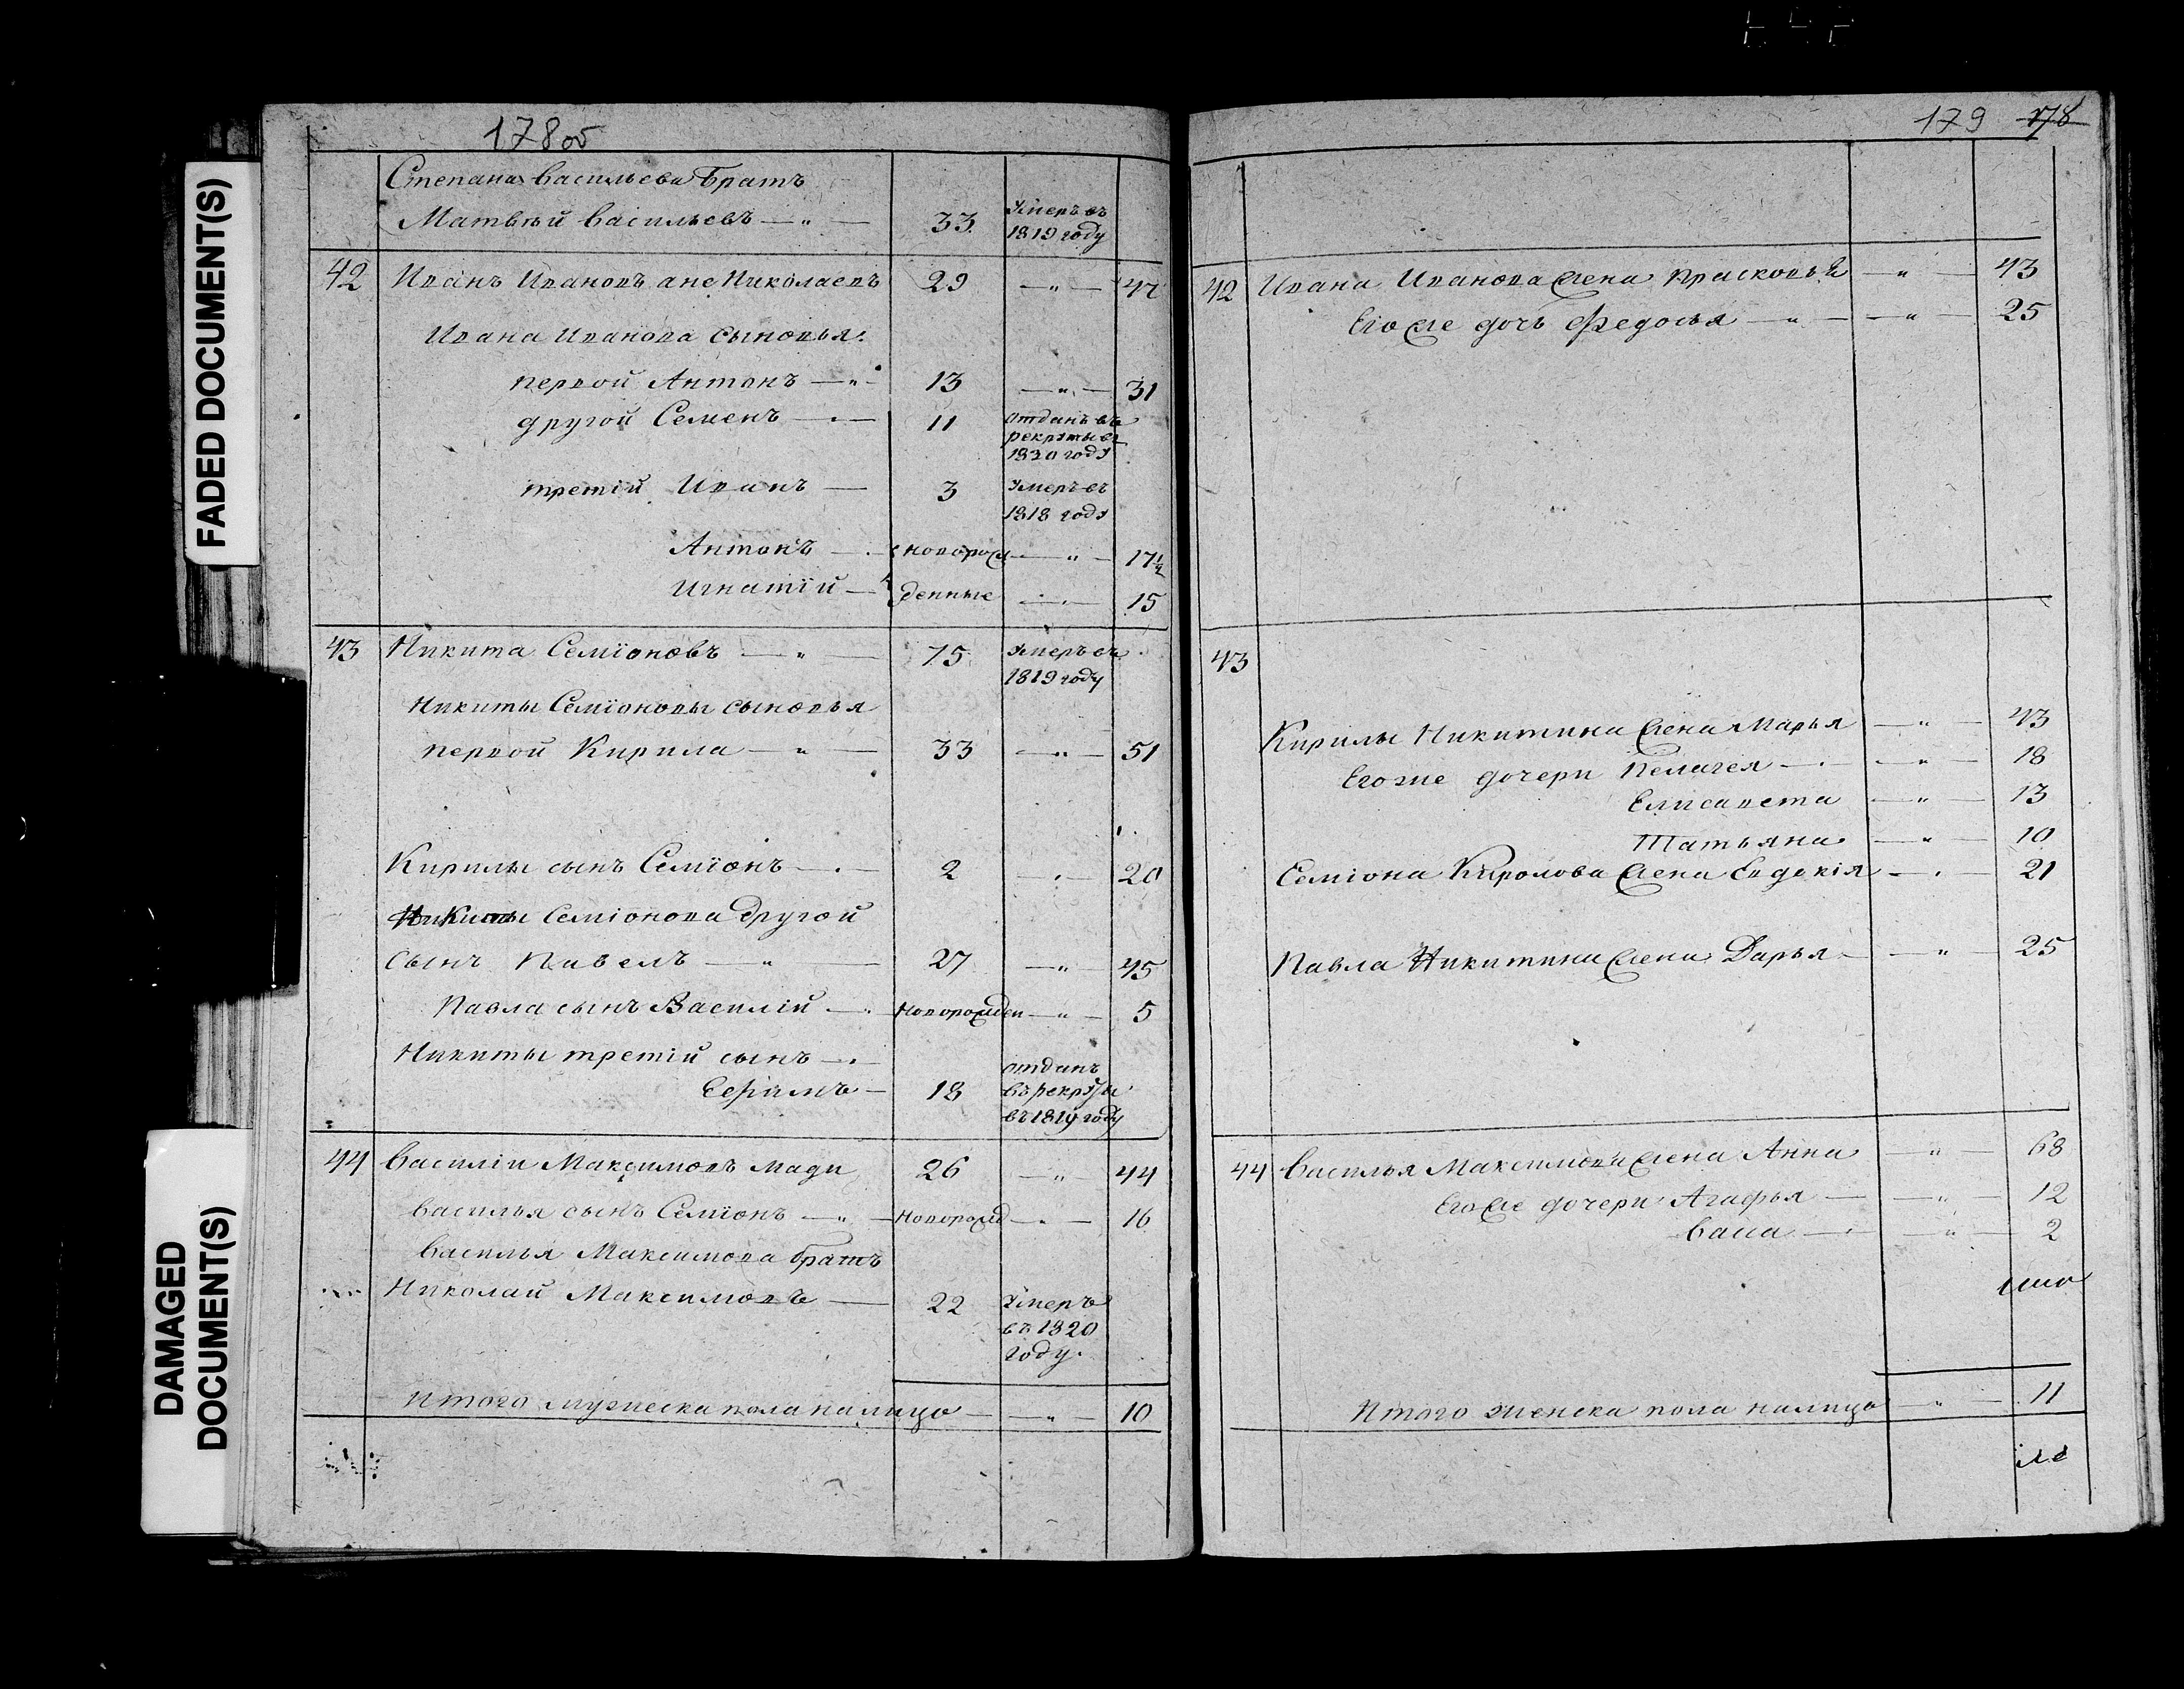 FADED DOCUMENT(S)
DAMAGED DOCUMENT(S)
178 об
Степана Васильева Братъ
Матвѣй Васильевъ — " — 33 Умеръ въ 1819 году
42 Иванъ Ивановъ а не Николаевъ 29 — " — 47
Ивана Иванова сыновья.
первой Антонъ — " — 13 — " — 31
другой Семенъ — 11 Отданъ въ рекруты въ 1820 году
третій Иванъ — 3 Умеръ въ 1818 году
Антонъ — новорож — " — 17½
Игнатій — денные — " — 15
43 Никита Семіоновъ — " — 75 Умеръ въ 1819 году
Никиты Семіоновы сыновья
первой Кирила — " — 33 — " — 51
Кирилы сынъ Семіонъ — 2 — " — 20
Никиты Семіонова другой
сынъ Павелъ — " — 27 — " — 45
Павла сынъ Василій — Новорожден — " — 5
Никиты третій сынъ —
Ефимъ — 18 отданъ въ рекруты въ 1819 году
44 Василій Максимовъ 26 — " — 44
Василья сынъ Семіонъ — " — Новорожд — " — 16
Василья Максимова братъ
Николай Максимовъ — 22 Умеръ въ 1820 году.
Итого мужеска пола налицо — " — 10
179 178
42 Ивана Иванова жена Прасковья — " — 43
Его же дочь Федосья — " — " — 25
43
Кирилы Никитина жена Марья — " — 43
Его же дочери Пелагея — " — 18
Елисавета — " — 13
Татьяна — " — 10
Семіона Киролова жена Евдокія — " — 21
Павла Никитина жена Дарья — " — 25
44 Василья Максимова жена Анна — " — 68
Его же дочери Агафья — " — 12
Васа — " — 2
Итого женска пола налицо — " — 11